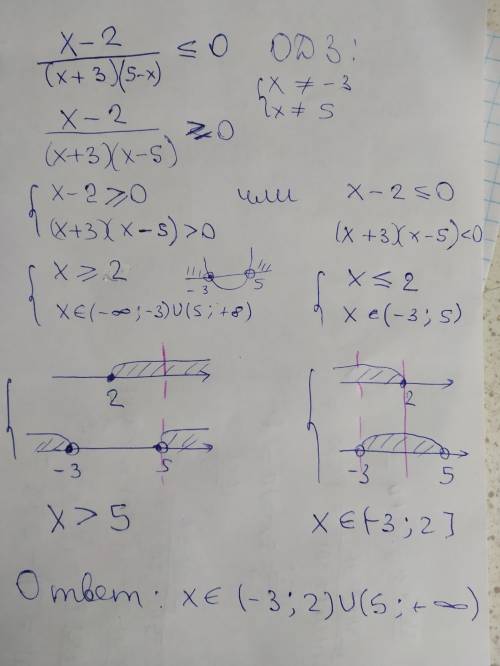 x-2 / (x+3)(5-x) ≤ 0 ОДЗ:
{ x ≠ -3
{ x ≠ 5
x-2 / (x+3)(x-5) ≥ 0
{ x-2 ≥ 0 или x-2 ≤ 0
(x+3)(x-5) > 0 (x+3)(x-5) < 0
{ x ≥ 2 -3 5 { x ≤ 2
x ∈ (-∞; -3) ∪ (5; +8) x ∈ (-3; 5)
2 2
-3 5 -3 5
x > 5 x ∈ (-3; 2]
Ответ: x ∈ (-3; 2) ∪ (5; +∞)